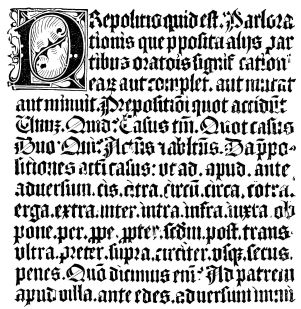 Prepositio quid est. Pars ora
tionis que pposita alijs par
tibus orationis significationẽ
earum aut complet. aut mutat
aut minuit. Prepositiõi quot accidũt
Unũ. Quid: Casus tm̃. Quot casus
Duo. Qui: Actũs ⁊ ablatiuus. Da p̃po
sitiones acti casus: ut ad. apud. ante
aduersum. cis. citra. circũ. circa. cotra.
erga. extra. inter. intra. infra. iuxta. ob
pone. per. ppe. ppter. scdm̃. post. trans
vltra. preter. supra. circiter. vsq. secus.
penes. Quõ dicimus eni: Ad patrem
apud villa. ante edes. aduersum inimi